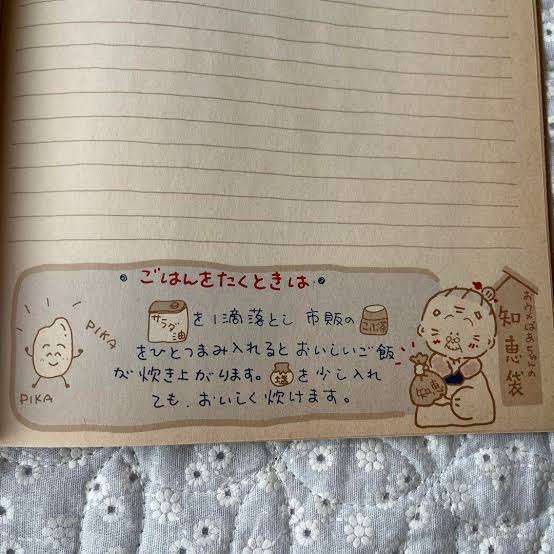 ごはんをたくときは
サラダ油を1滴落とし 市販のこぶ茶
をひとつまみ入れるとおいしいご飯
が炊き上がります。塩を少し入れ
ても、おいしく炊けます。
PIKA
PIKA
知恵袋
知恵